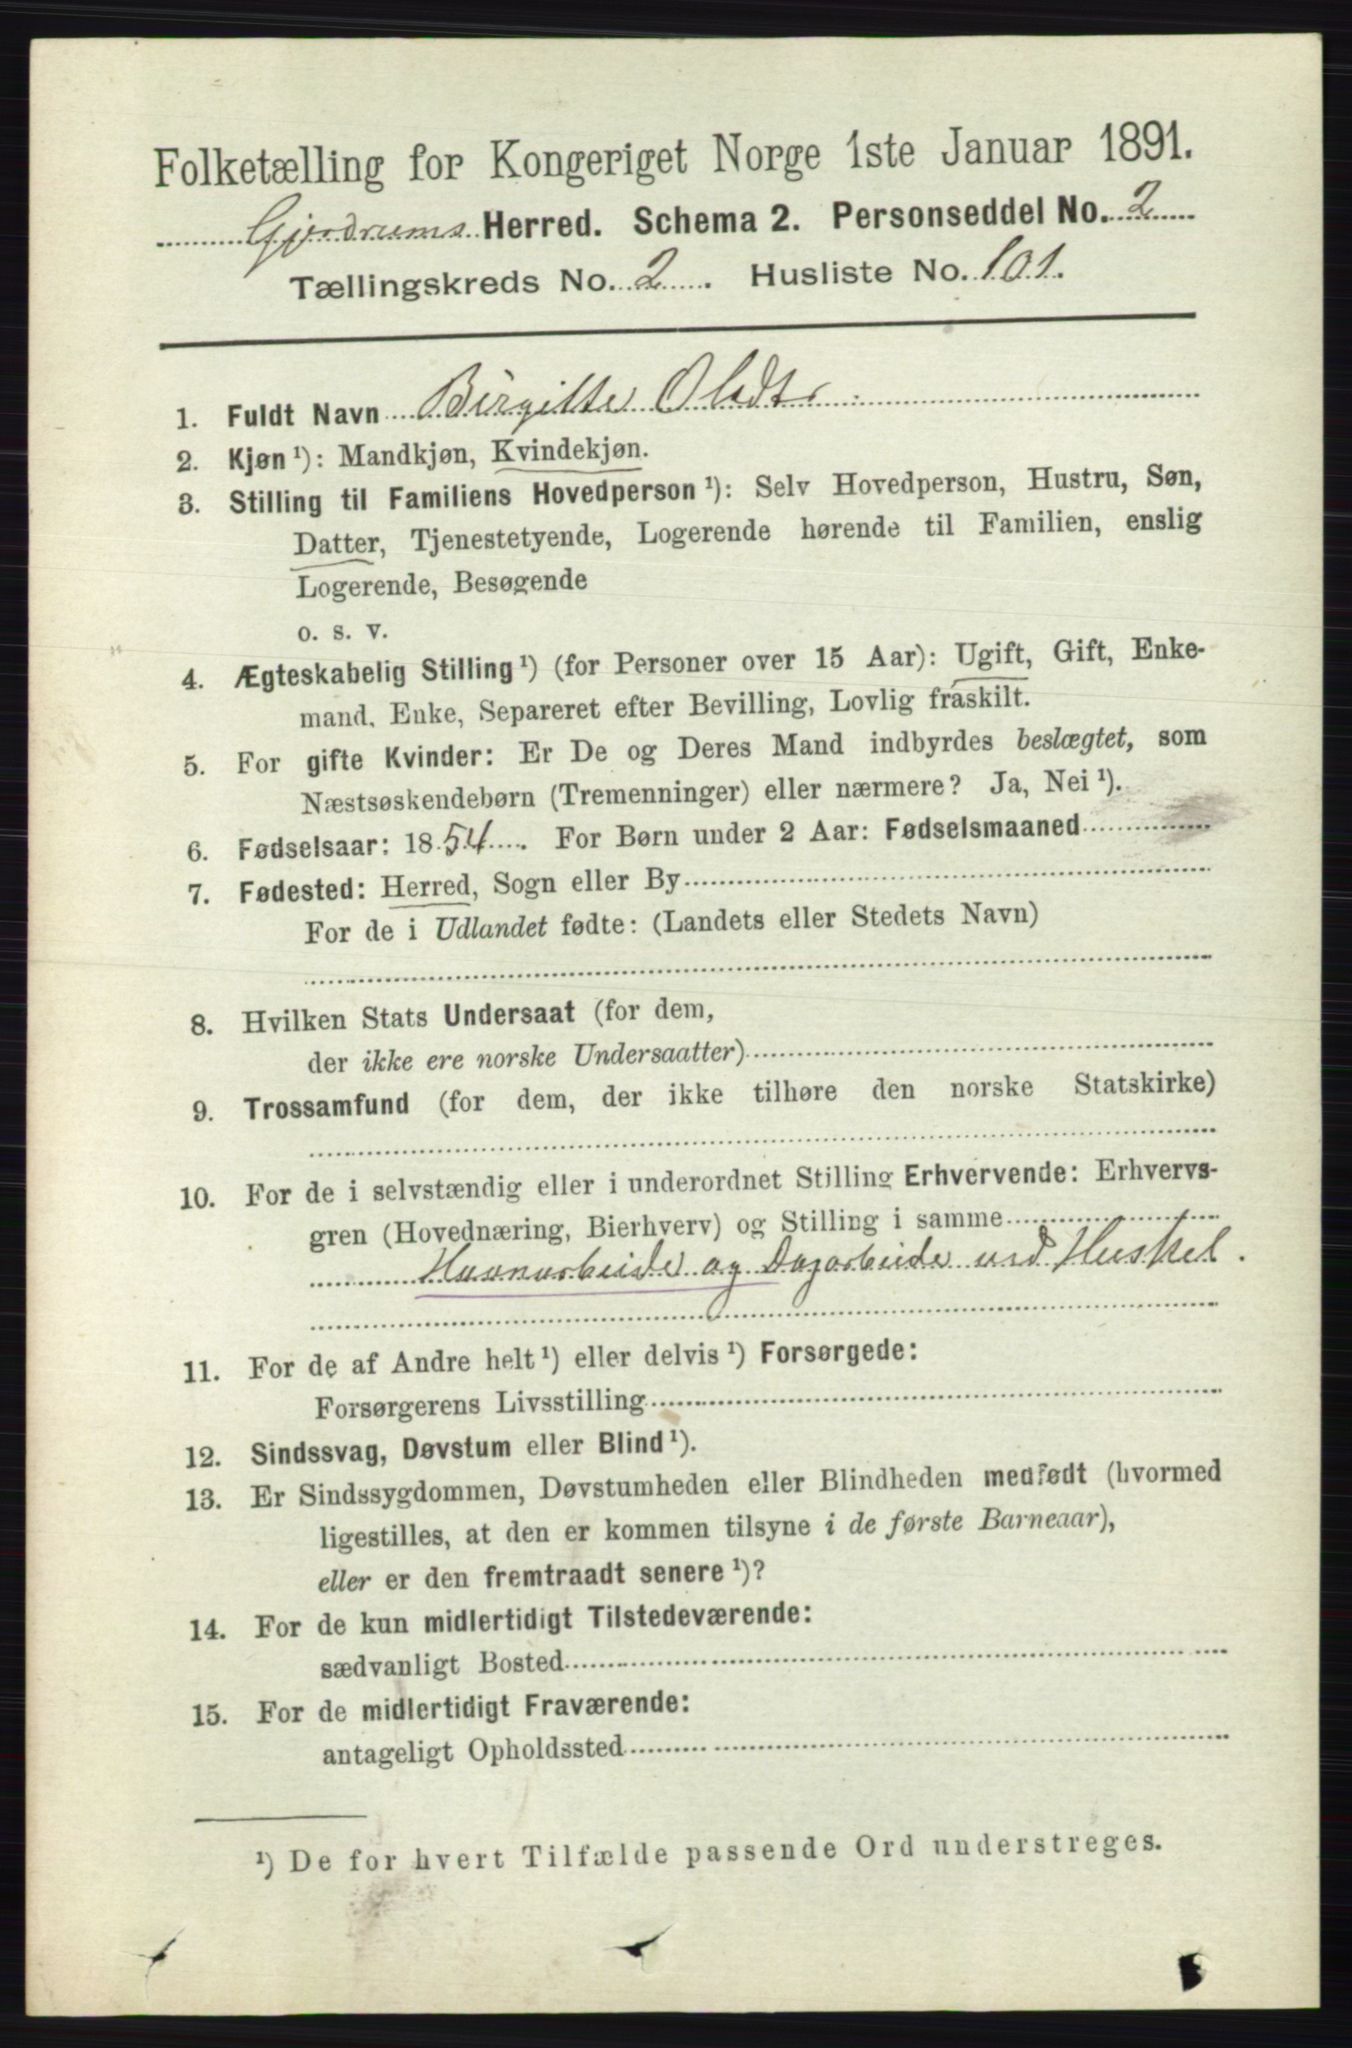 Folketælling for Kongeriget Norge 1ste Januar 1891.
Gjerdrums Herred. Schema 2. Personseddel No. 2
Tællingskreds No. 2. Husliste No. 101.
1. Fuldt Navn Birgitte Olsdtr
2. Kjøn ¹): Mandkjøn, Kvindekjøn.
3. Stilling til Familiens Hovedperson ¹): Selv Hovedperson, Hustru, Søn,
Datter, Tjenestetyende, Logerende hørende til Familien, enslig
Logerende, Besøgende
o. s. v.
4. Ægteskabelig Stilling ¹) (for Personer over 15 Aar): Ugift, Gift, Enke-
mand, Enke, Separeret efter Bevilling, Lovlig fraskilt.
5. For gifte Kvinder: Er De og Deres Mand indbyrdes beslægtet, som
Næstsøskendebørn (Tremenninger) eller nærmere? Ja, Nei ¹).
6. Fødselsaar: 1854. For Børn under 2 Aar: Fødselsmaaned
7. Fødested: Herred, Sogn eller By
For de i Udlandet fødte: (Landets eller Stedets Navn)
8. Hvilken Stats Undersaat (for dem,
der ikke ere norske Undersaatter)
9. Trossamfund (for dem, der ikke tilhøre den norske Statskirke)
10. For de i selvstændig eller i underordnet Stilling Erhvervende: Erhvervs-
gren (Hovednæring, Bierhverv) og Stilling i samme
og Dagarbeide ved
11. For de af Andre helt ¹) eller delvis ¹) Forsørgede:
Forsørgerens Livsstilling
12. Sindssvag, Døvstum eller Blind ¹).
13. Er Sindssygdommen, Døvstumheden eller Blindheden medfødt (hvormed
ligestilles, at den er kommen tilsyne i de første Barneaar),
eller er den fremtraadt senere ¹)?
14. For de kun midlertidigt Tilstedeværende:
sædvanligt Bosted
15. For de midlertidigt Fraværende:
antageligt Opholdssted
¹) De for hvert Tilfælde passende Ord understreges.